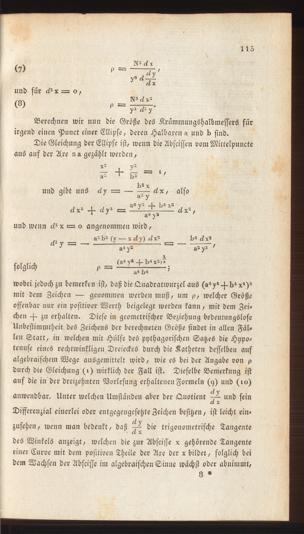 115
(7) ρ = N³ dx / y² d dy/dx,
und für d²x = 0,
(8) ρ = N³ dx² / y³ d²y.
Berechnen wir nun die Größe des Krümmungshalbmessers für
irgend einen Punct einer Ellipse, deren Halbaxen a und b sind.
Die Gleichung der Ellipse ist, wenn die Abscissen vom Mittelpuncte
aus auf der Axe 2a gezählt werden,
x²/a² + y²/b² = 1,
und gibt uns dy = — b²x/a²y dx, also
dx² + dy² = a⁴y² + b⁴x² / a⁴y² dx²,
und wenn d²x = 0 angenommen wird,
d²y = — a²b² (y — x dy) dx² / a⁴y² = — b⁴ dx² / a²y³,
folglich ρ = (a⁴y² + b⁴x²)^3/2 / a⁴b⁴;
wobei jedoch zu bemerken ist, daß die Quadratwurzel aus (a⁴y² + b⁴x²)³
mit dem Zeichen — genommen werden muß, um ρ, welcher Größe
offenbar nur ein positiver Werth beigelegt werden kann, mit dem Zei-
chen + zu erhalten. Diese in geometrischer Beziehung bedeutungslose
Unbestimmtheit des Zeichens der berechneten Größe findet in allen Fäl-
len Statt, in welchen mit Hilfe des pythagorischen Satzes die Hypo-
tenuse eines rechtwinkligen Dreiecks durch die Katheten desselben auf
algebraischem Wege ausgemittelt wird, wie es bei der Angabe von ρ
durch die Gleichung (1) wirklich der Fall ist. Dieselbe Bemerkung ist
auf die in der dreizehnten Vorlesung erhaltenen Formeln (9) und (10)
anwendbar. Unter welchen Umständen aber der Quotient dy/dx und sein
Differenzial einerlei oder entgegengesetzte Zeichen besitzen, ist leicht ein-
zusehen, wenn man bedenkt, daß dy/dx die trigonometrische Tangente
des Winkels anzeigt, welchen die zur Abscisse x gehörende Tangente
einer Curve mit dem positiven Theile der Axe der x bildet, folglich bei
dem Wachsen der Abscisse im algebraischen Sinne wächst oder abnimmt,
8 *